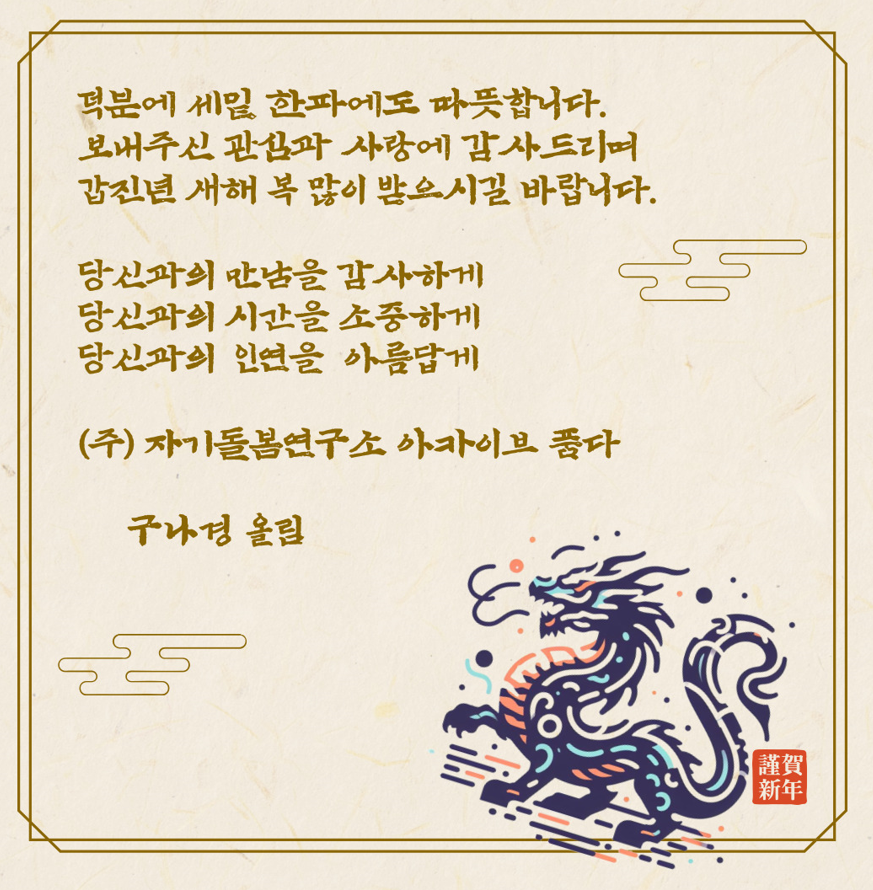 덕분에 세밑 한파에도 따뜻합니다.
보내주신 관심과 사랑에 감사드리며
갑진년 새해 복 많이 받으시길 바랍니다.
당신과의 만남을 감사하게
당신과의 시간을 소중하게
당신과의 인연을 아름답게
(주) 자기돌봄연구소 아카이브 품다
구나경 올림
謹賀
新年